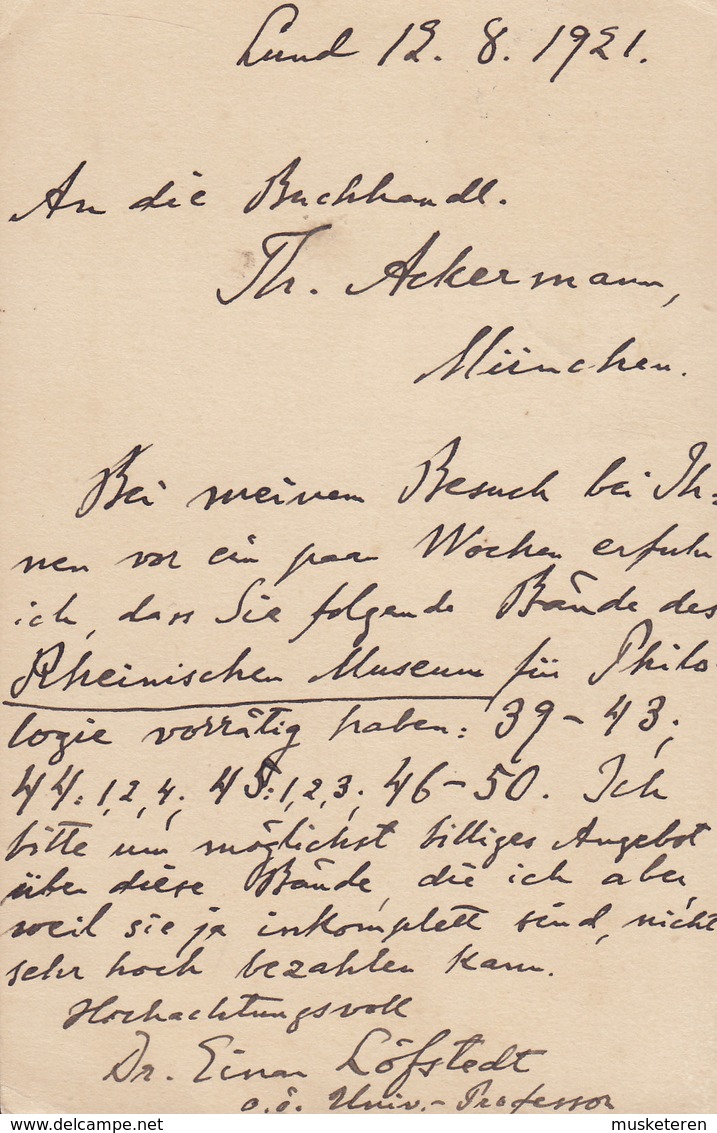 Lund 12. 8. 1921.
An die Buchhandl.
Th. Ackermann,
München.
Bei meinem Besuch bei Ih=
nen vor ein paar Wochen erfuhr
ich, dass Sie folgende Bände des
Rheinischen Museum für Philo-
logie vorrätig haben: 39-43;
44: 1, 2, 4; 45: 1, 2, 3; 46-50. Ich
bitte um möglichst billiges Angebot
über diese Bände, die ich aber,
weil sie ja inkomplett sind, nicht
sehr hoch bezahlen kann.
Hochachtungsvoll
Dr. Einar Löfstedt
o.ö. Univ.-Professor
delcampe.net
musketeren